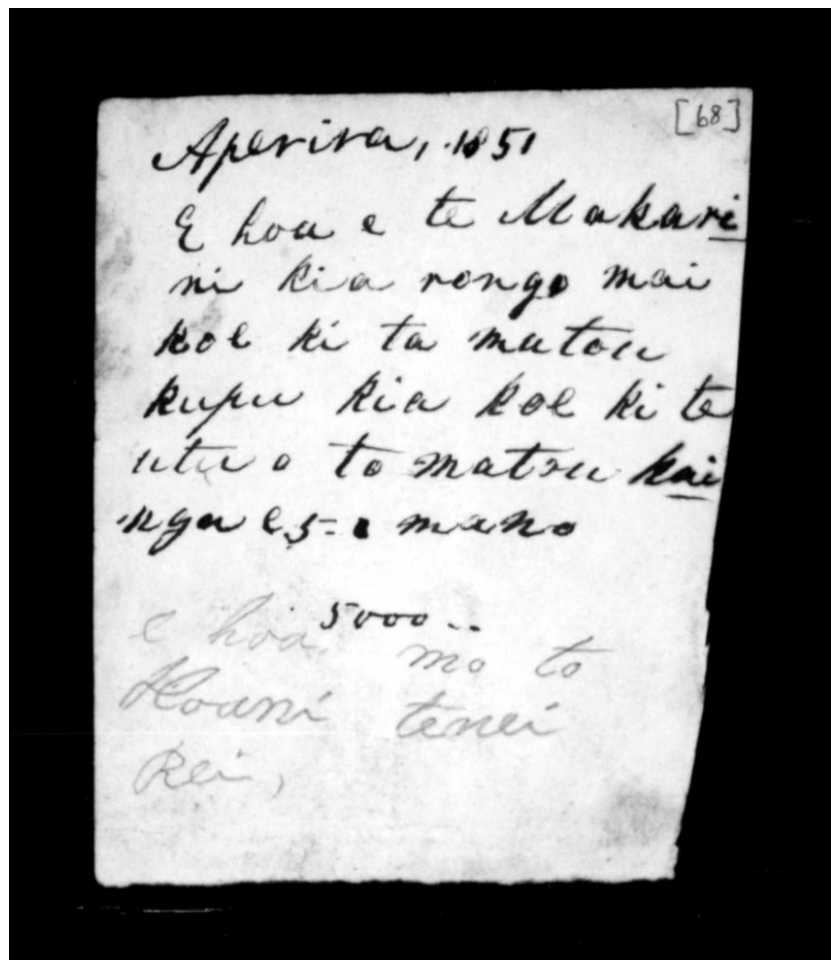 [68]
Aperira, 1851
E hoa e te Makari
ni kia rongo mai
koe ki ta matou
kupu kia koe ki te
utu o to matou kai
nga e 5 = mano
5000 ..
e hoa mo to
Hoani tenei
Rei,